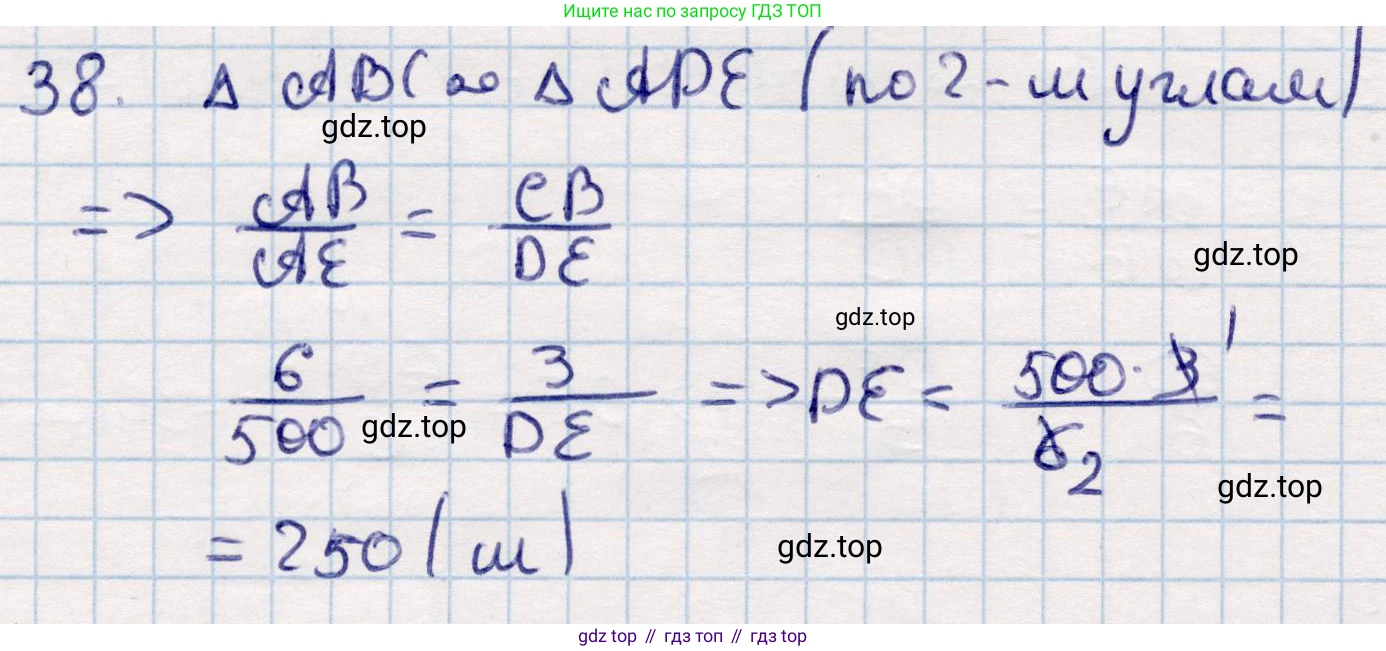 Ищите нас по запросу ГДЗ ТОП
38. Δ ABC ∾ Δ ADE (по 2-м углам)
gdz.top
=> AB/AE = CB/DE
gdz.top
gdz.top
6/500 = 3/DE => DE = 500·3 1/6 2 =
gdz.top
gdz.top
= 250 (м)
gdz.top
gdz top // гдз топ // gdz top